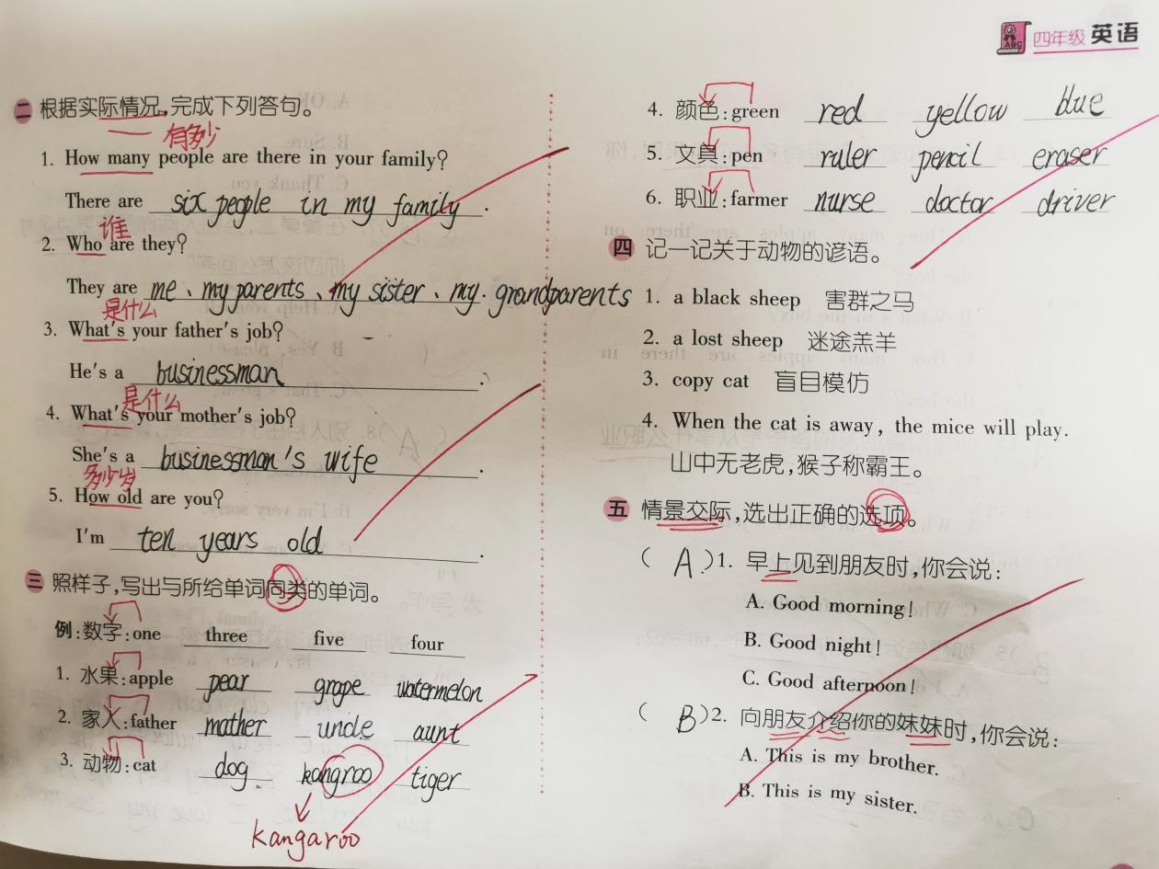 四年级 英语
二 根据实际情况,完成下列答句。
有多少
1. How many people are there in your family?
There are six people in my family.
谁
2. Who are they?
They are me、my parents、my sister、my grandparents
是什么
3. What's your father's job?
He's a businessman.
是什么
4. What's your mother's job?
She's a businessman's wife.
多少岁
5. How old are you?
I'm ten years old.
三 照样子,写出与所给单词同类的单词。
例:数字:one three five four
1. 水果:apple pear grape watermelon
2. 家人:father mather uncle aunt
3. 动物:cat dog. kangroo tiger
kangaroo
4. 颜色:green red yellow blue
5. 文具:pen ruler pencil eraser
6. 职业:farmer nurse doctor driver
四 记一记关于动物的谚语。
1. a black sheep 害群之马
2. a lost sheep 迷途羔羊
3. copy cat 盲目模仿
4. When the cat is away, the mice will play.
山中无老虎,猴子称霸王。
五 情景交际,选出正确的选项。
( A )1. 早上见到朋友时,你会说:
A. Good morning!
B. Good night!
C. Good afternoon!
( B )2. 向朋友介绍你的妹妹时,你会说:
A. This is my brother.
B. This is my sister.